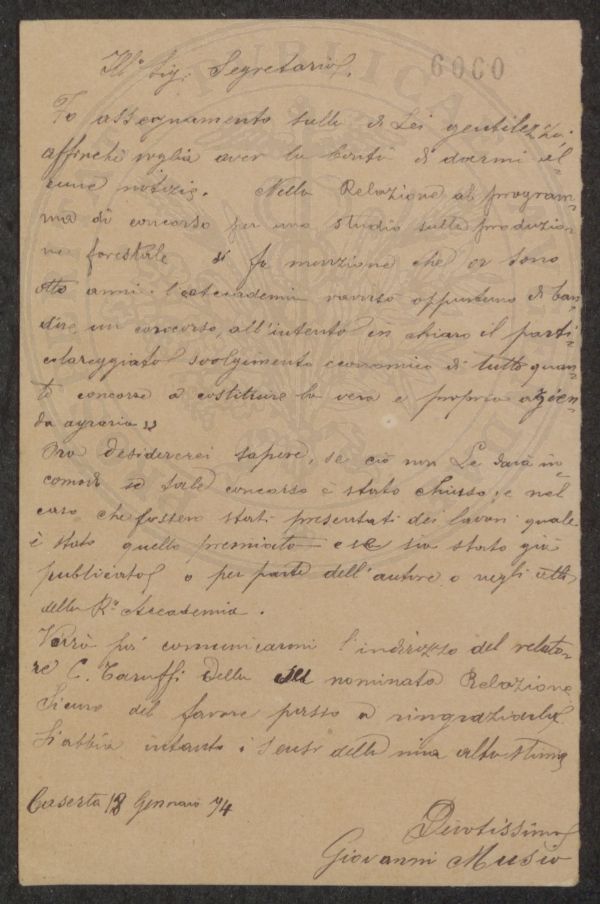 Ill.º Sig. Segretario,
6060
Fo assegnamento sulla di Lei gentilezza,
affinchè voglia aver la bontà di darmi al-
cune notizie. Nella Relazione al program-
ma di concorso per uno studio sulla produzio-
ne forestale si fa menzione che or sono
otto anni l'accademia ravvisò opportuno di ban-
dire un concorso, all'intento in chiaro il parti-
colareggiato svolgimento economico di tutto quan-
to concorre a costituire la vera e propria azien-
da agraria.
Ora desidererei sapere, se ciò non Le sarà in-
comodo se tale concorso è stato chiuso; e nel
caso che fossero stati presentati dei lavori quale
è stato quello premiato e se sia stato già
publicato o per parte dell'autore o negli atti
della Rª Accademia.
Vorrà poi comunicarmi l'indirizzo del relato-
re C. Taruffi della nominata Relazione
Sicuro del favore passo a ringraziarla
S'abbia intanto i sensi della mia alta stima
Caserta 18 Gennaio 94
Devotissimo
Giovanni Musio